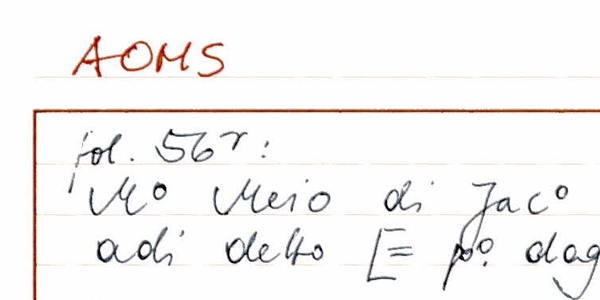 AOMS
fol. 56r:
Mo Meio di Jaco
adi detto [= po. dag